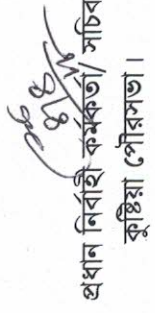 প্রধান নির্বাহী কর্মকর্তা/ সচিব
কুষ্টিয়া পৌরসভা।